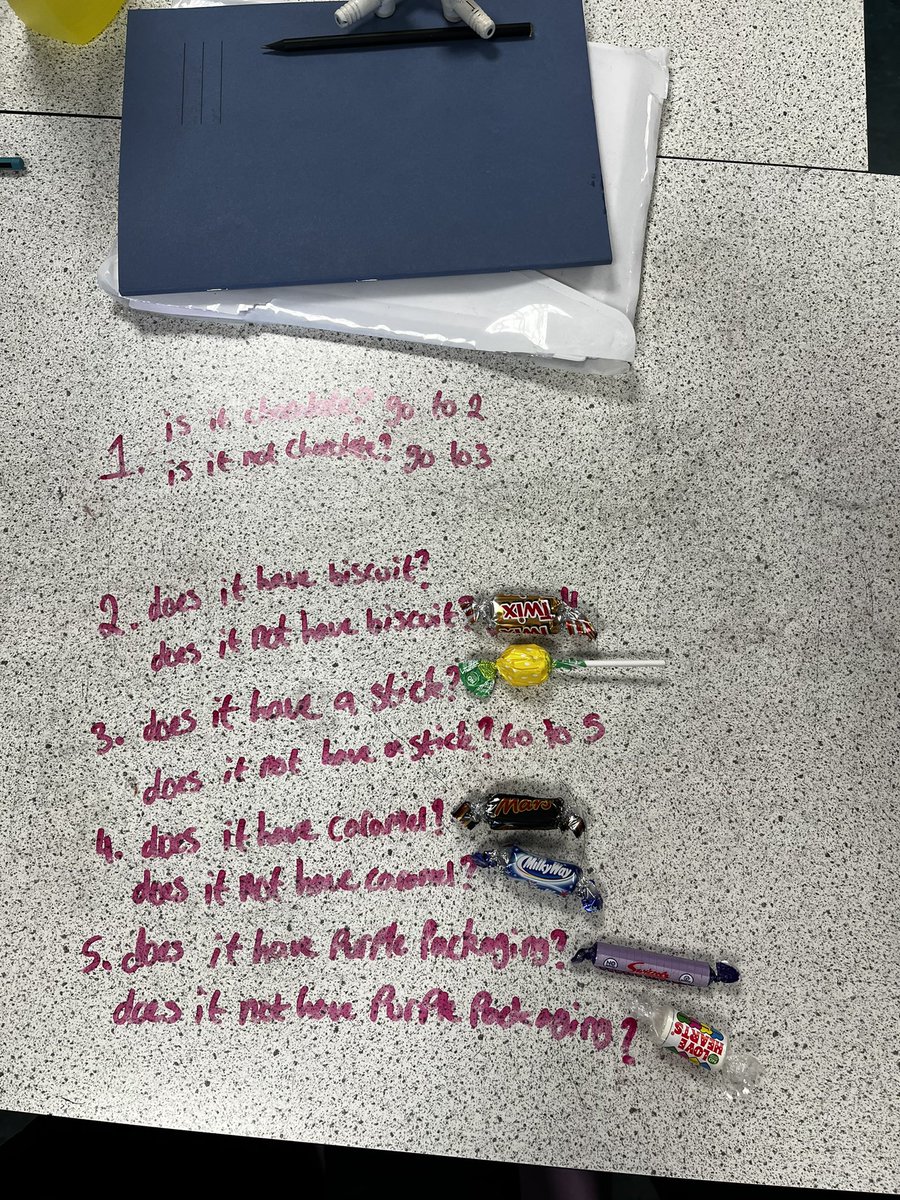 1. is it chocolate? go to 2
is it not chocolate? go to 3
2. does it have biscuit?
TWIX
TWIX
does it not have biscuit? 4
3. does it have a stick?
does it not have a stick? Go to 5
4. does it have caramel?
Mars
does it not have caramel?
MilkyWay
5. does it have Purple Packaging?
does it not have Purple Packaging?
LOVE
HEARTS